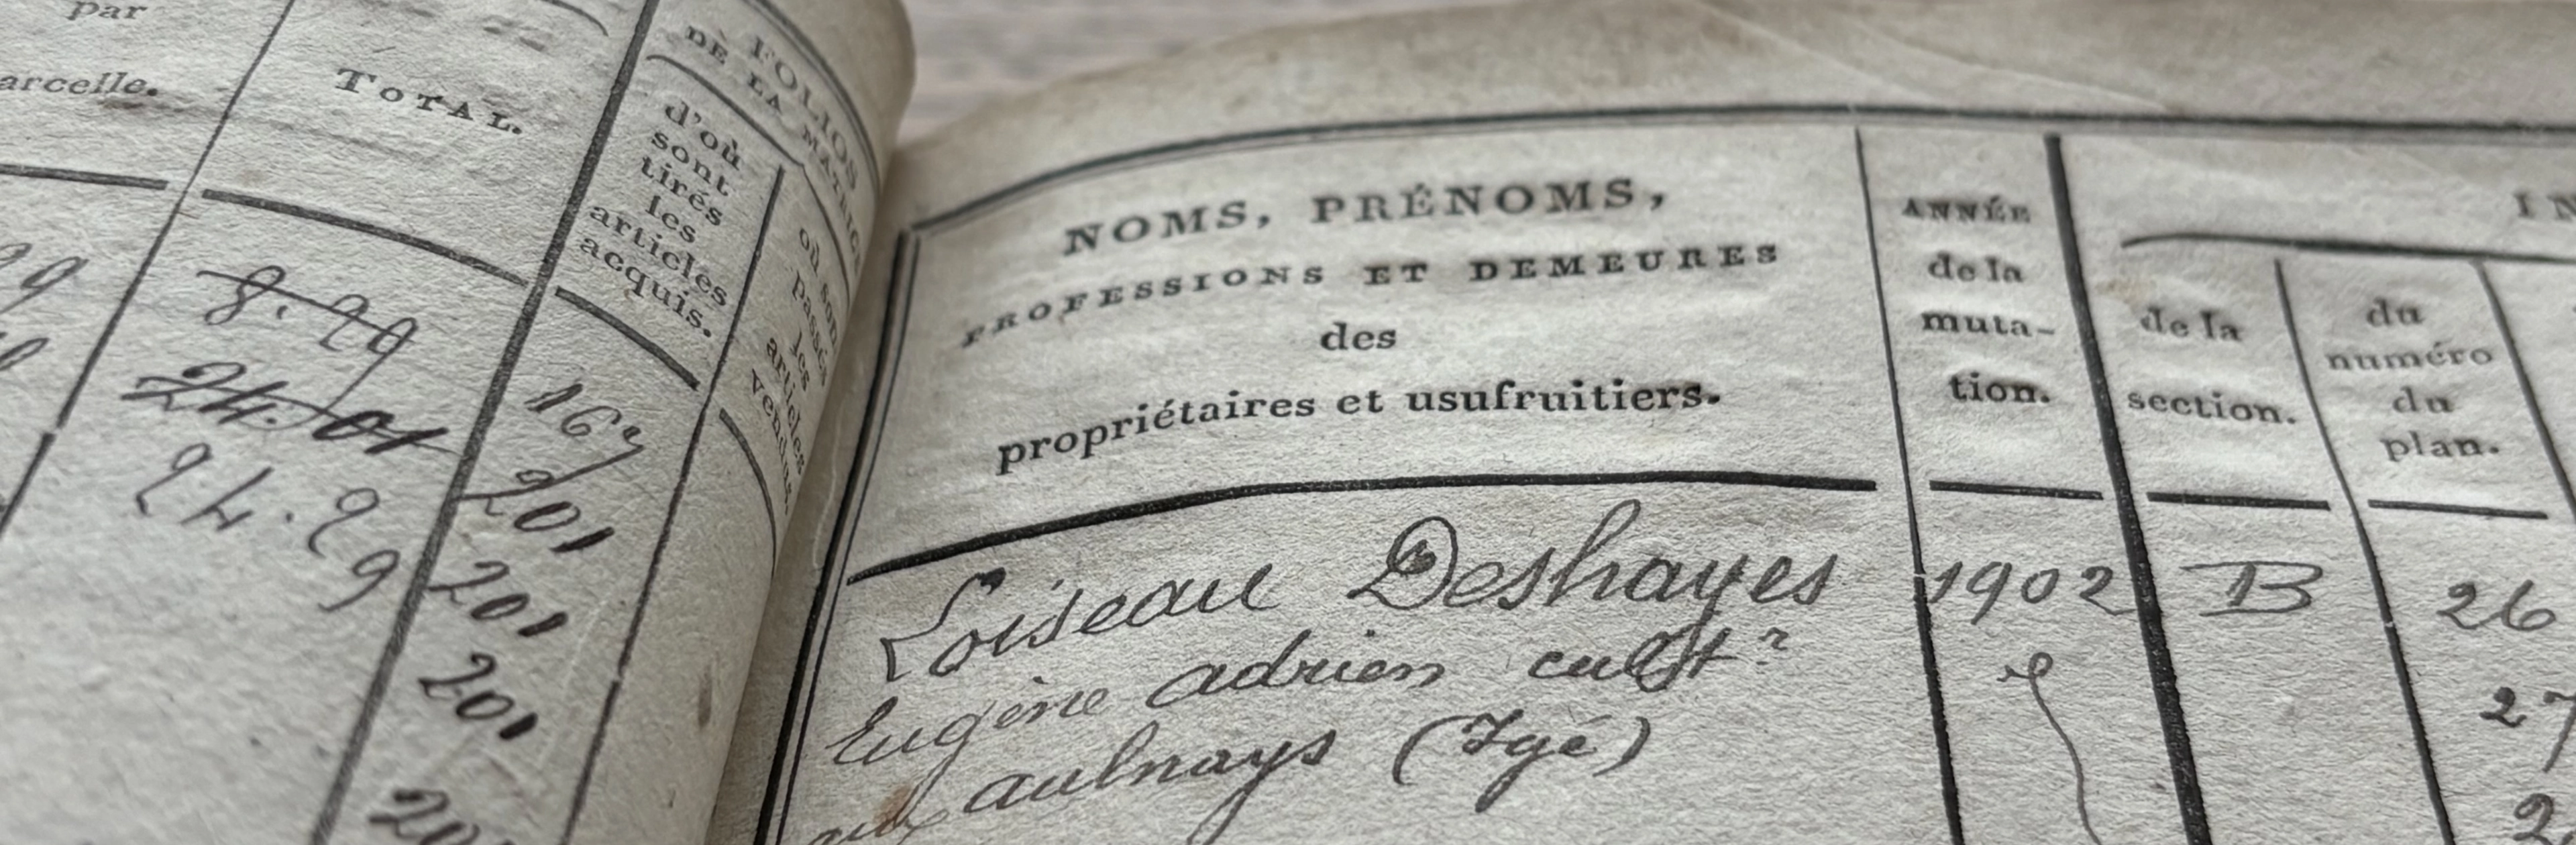 par
arcelle.
TOTAL.
8.29
24.01
24.29
FOLIOS
DE LA MATRICE
d'où
sont
tirés
les
articles
acquis.
où sont
passés
les
articles
vendus.
167
201
201
201
NOMS, PRÉNOMS,
PROFESSIONS ET DEMEURES
des
propriétaires et usufruitiers.
ANNÉE
de la
muta-
tion.
de la
section.
du
numéro
du
plan.
Loiseau Deshayes 1902 B 26
Eugène adrien cultr
27
aux aulnays (Igé)